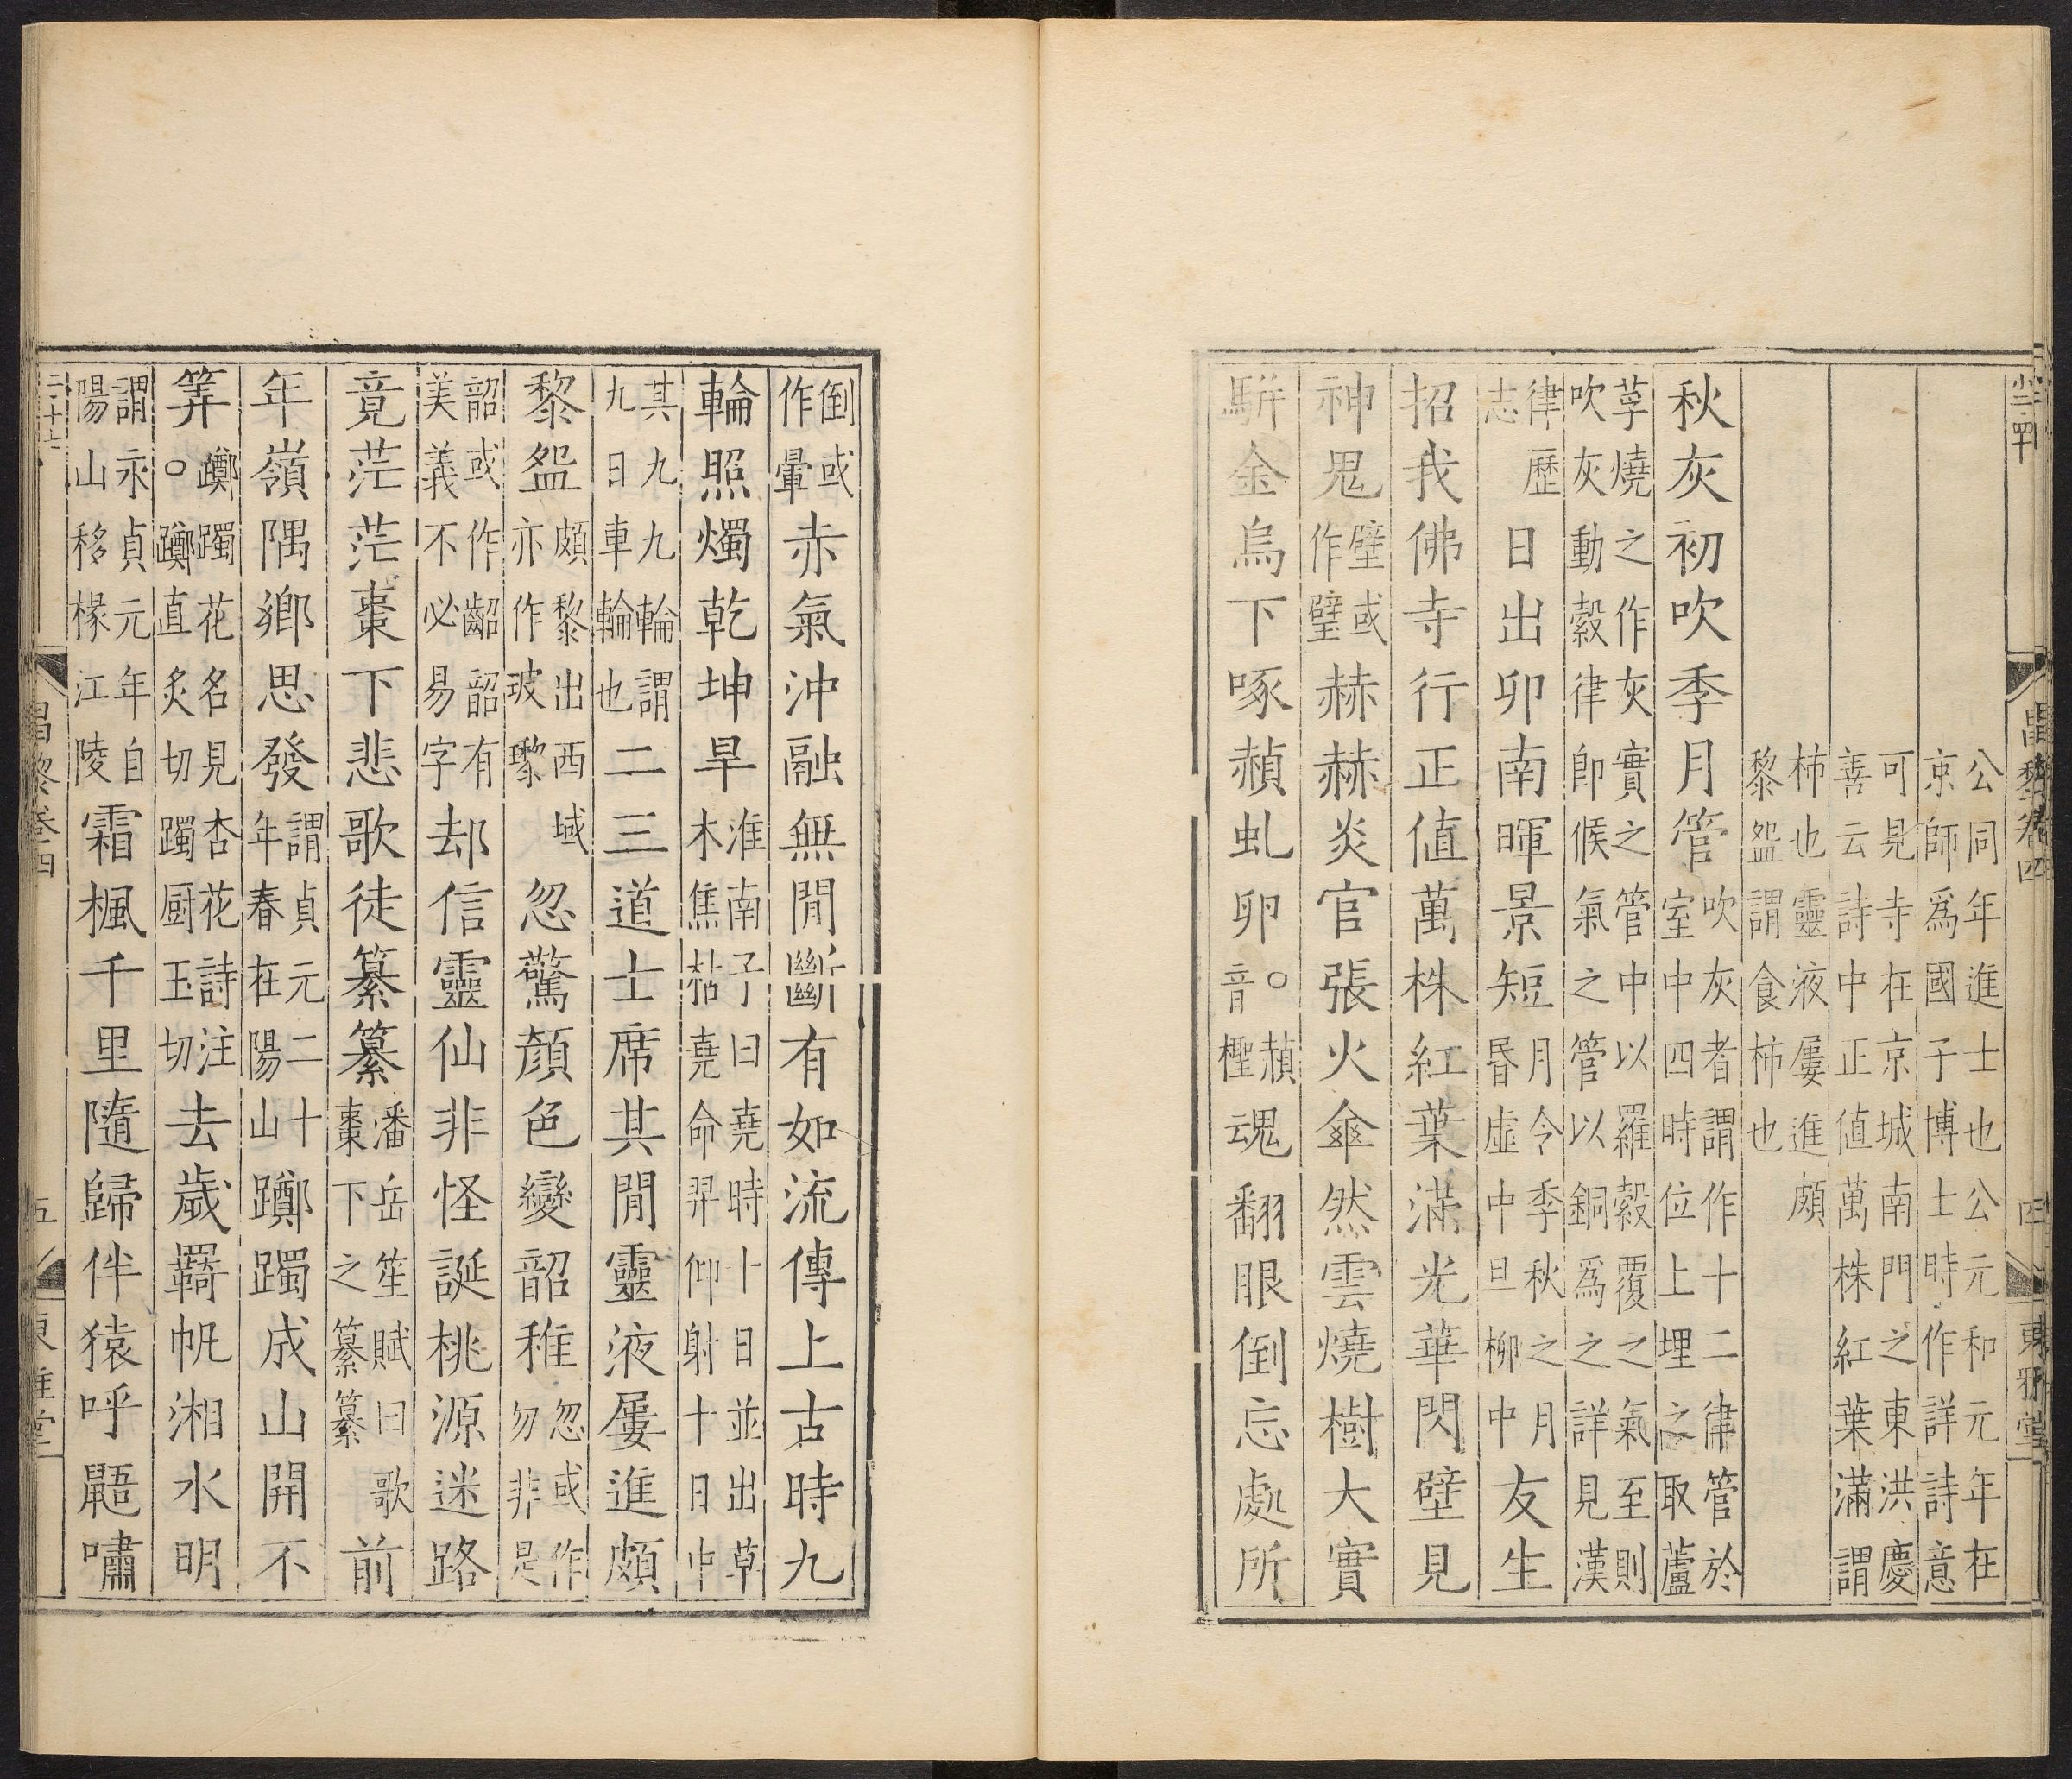 昌黎卷四 四 東雅堂
公同年進士也公元和元年在
京師爲國子博士時作詳詩意
可見寺在京城南門之東洪慶
善云詩中正值萬株紅葉滿謂
柿也靈液屢進頗
黎盌謂食柿也
秋灰初吹季月管吹灰者謂作十二律管於室中四時位上埋之取蘆
莩燒之作灰實之管中以羅縠覆之氣至則
吹灰動縠律即候氣之管以銅爲之詳見漢
律歷志日出卯南暉景短月令季秋之月昬虛中旦柳中友生
招我佛寺行正值萬株紅葉滿光華閃壁見
神鬼壁或作璧赫赫炎官張火傘然雲燒樹大實
駢金烏下啄赬虬卵○赬音檉魂翻眼倒忘處所
倒或作暈赤氣沖融無閒斷有如流傳上古時九
輪照燭乾坤旱淮南子曰堯時十日並出草木焦枯堯命羿仰射十日中
其九九九輪謂九日車輪也二三道士席其閒靈液屢進頗
黎盌頗黎出西域亦作玻瓈忽驚顏色變韶稚忽或作勿非是
韶或作齠韶有美義不必易字却信靈仙非怪誕桃源迷路
竟茫茫棗下悲歌徒纂纂潘岳笙賦曰歌棗下之纂纂前
年嶺隅鄉思發謂貞元二十年春在陽山躑躅成山開不
筭躑躅花名見杏花詩注○躑直炙切躅厨玉切去歲羇帆湘水明
謂永貞元年自陽山移椽江陵霜楓千里隨歸伴猿呼鼯嘯
二十七 昌黎卷四 五 東雅堂